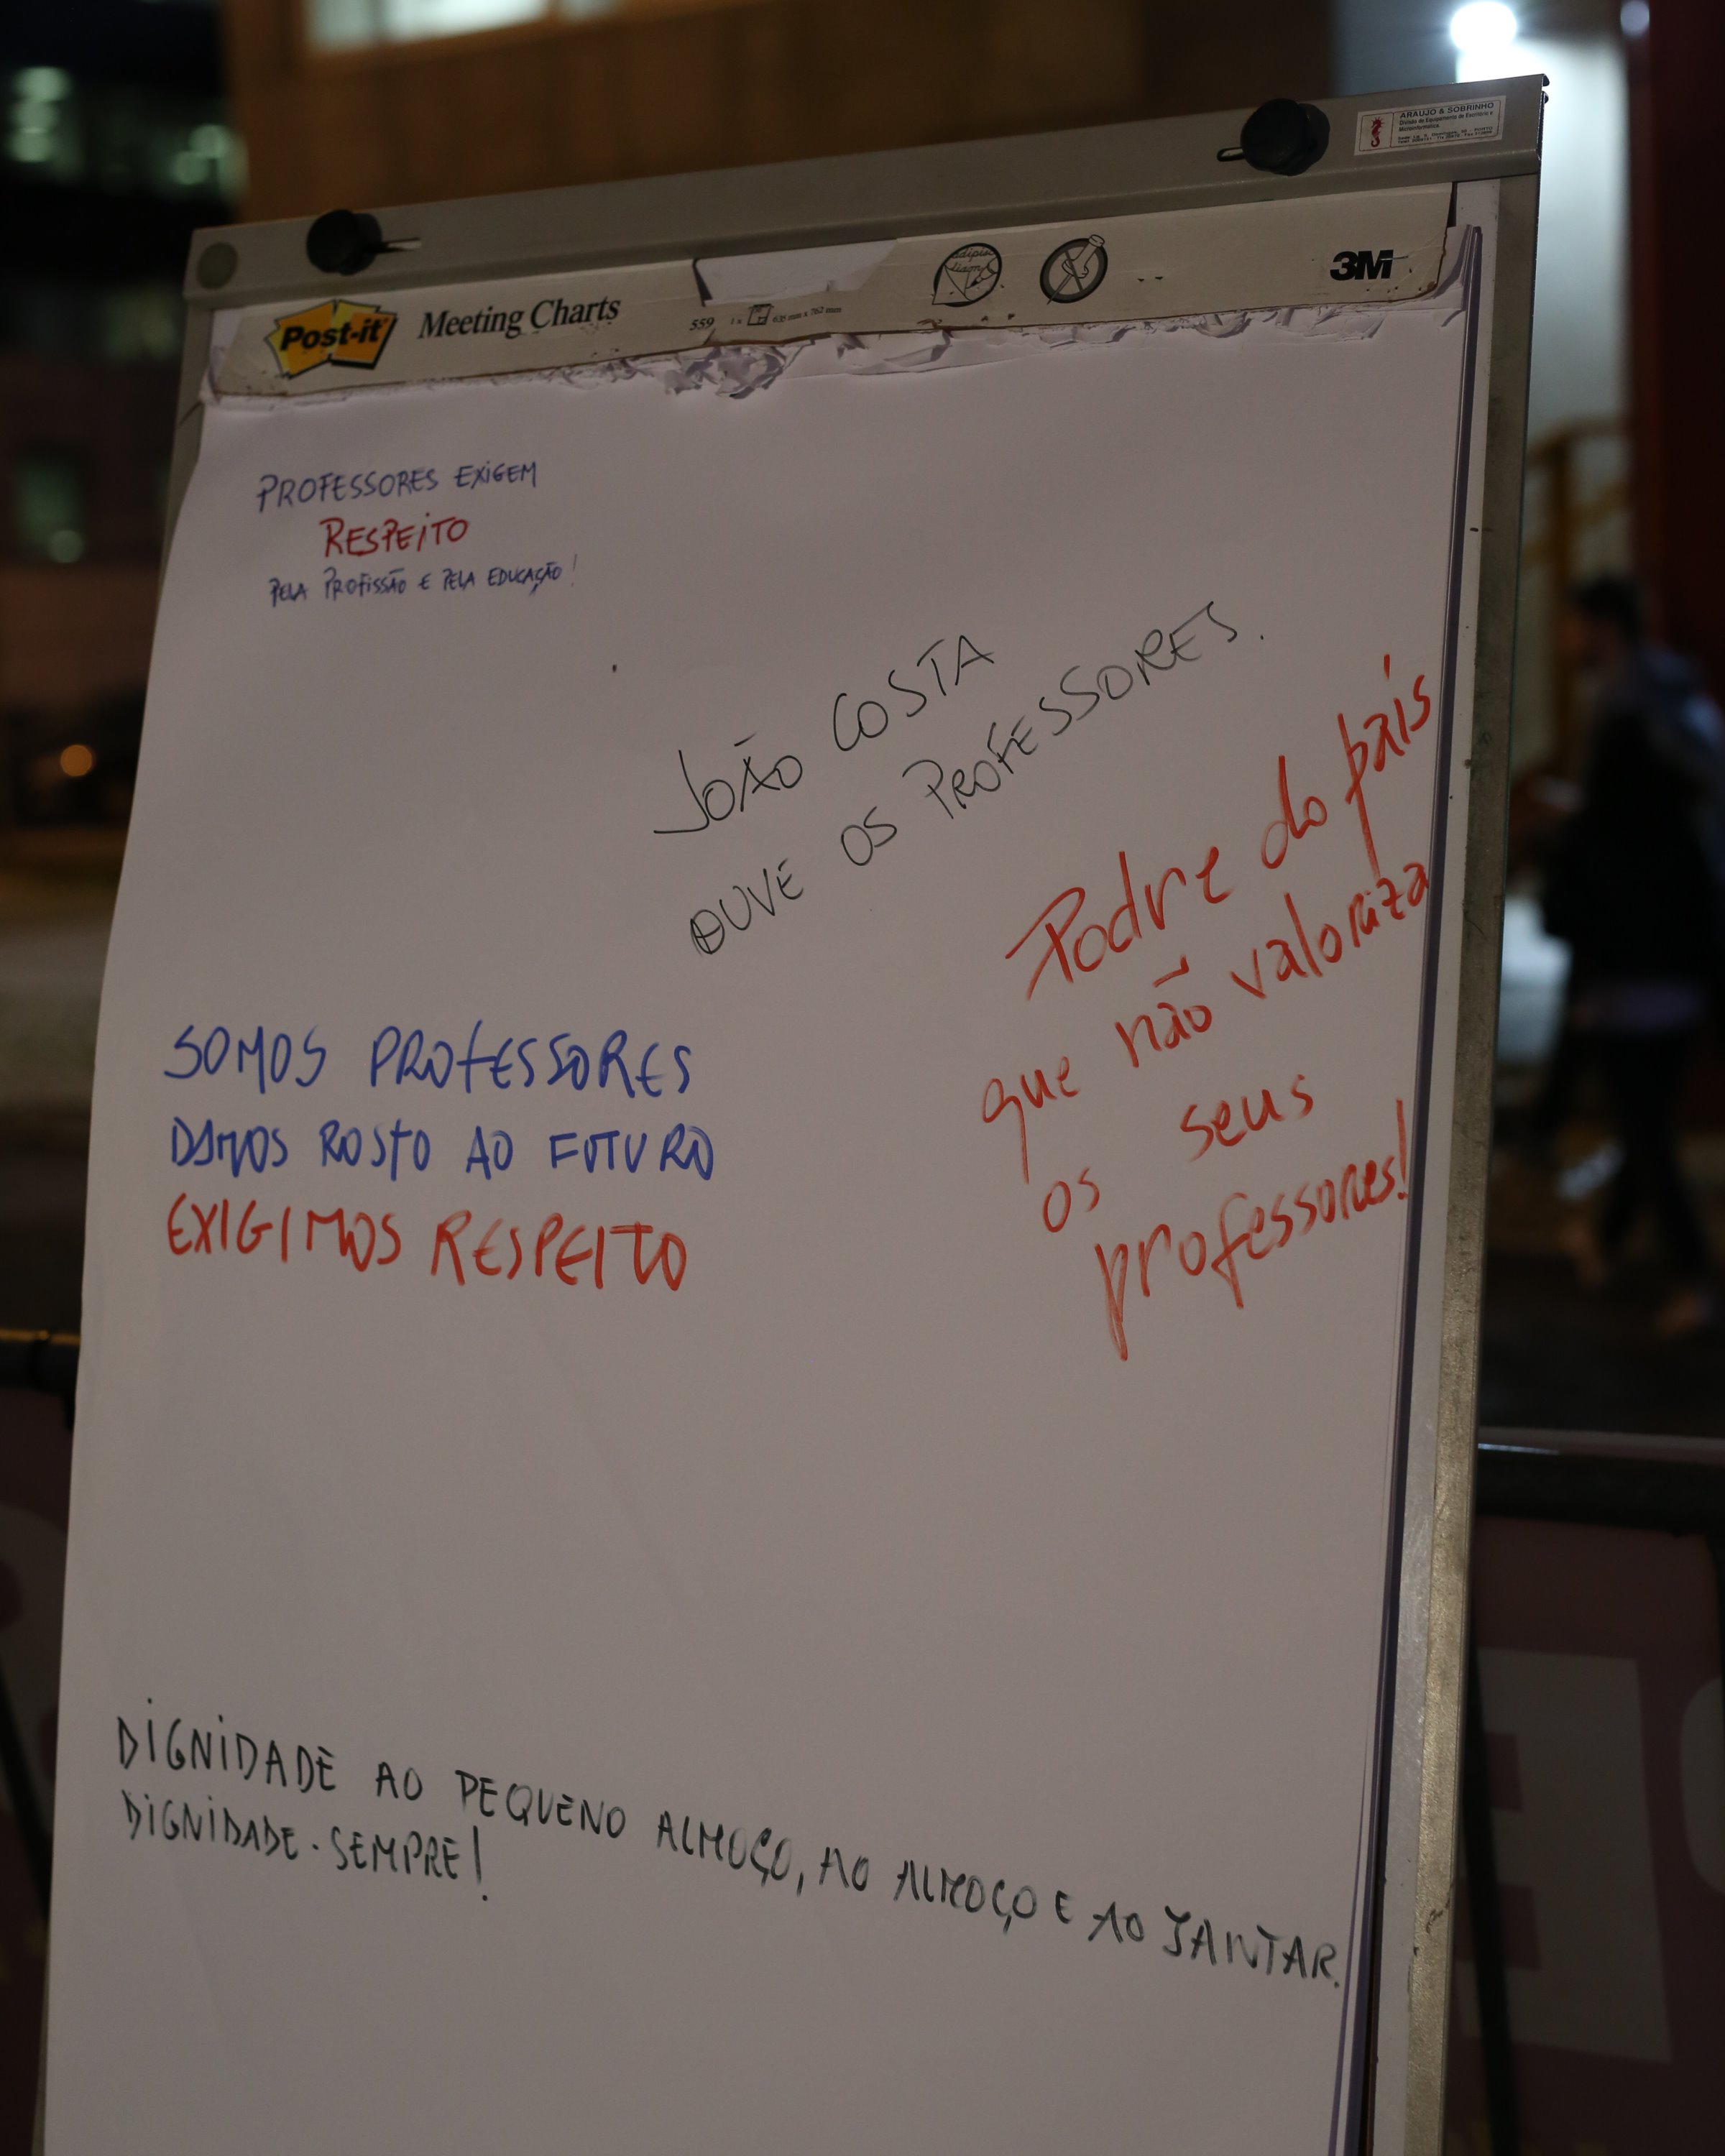 ARAÚJO & SOBRINHO
Post-it Meeting Charts
559
635 mm x 762 mm
3M
PROFESSORES EXIGEM
RESPEITO
PELA PROFISSÃO E PELA EDUCAÇÃO!
JOÃO COSTA
OUVE OS PROFESSORES.
Podre do país
que não valoriza
os seus
professores!
SOMOS PROFESSORES
DAMOS ROSTO AO FUTURO
EXIGIMOS RESPEITO
DIGNIDADE AO PEQUENO ALMOÇO, AO ALMOÇO E AO JANTAR.
DIGNIDADE. SEMPRE!